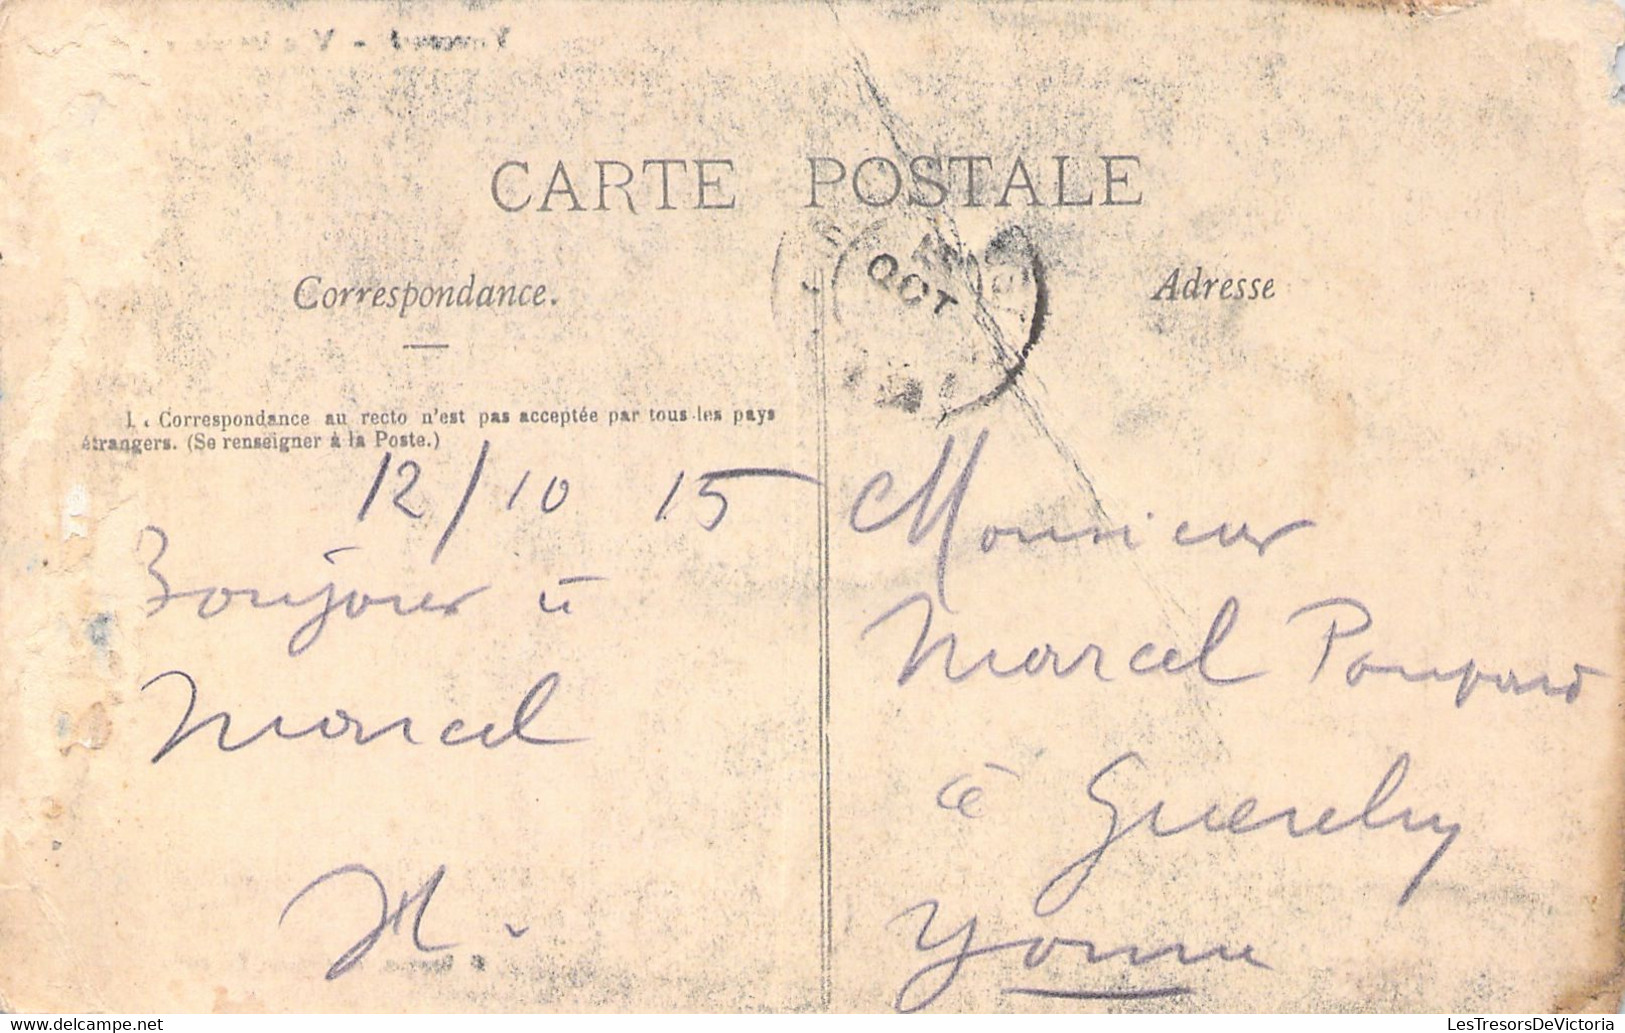 CARTE POSTALE
Correspondance.
Adresse
OCT
La Correspondance au recto n'est pas acceptée par tous les pays
étrangers. (Se renseigner à la Poste.)
12/10 15
Bonjour à
Marcel
H.
Monsieur
Marcel Poupard
à Guerchy
Yonne
LesTresorsDeVictoria